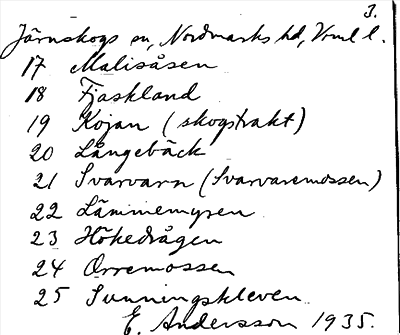 3.
Järnskogs sn, Nordmarks hd, Vrml l.
17 Malisåsen
18 Fjaskland
19 Kojan (skogstrakt)
20 Långebäck
21 Svarvarn (Svarvaremossen)
22 Lämmemyren
23 Hökedrågen
24 Orremossen
25 Sunningskleven
E. Andersson 1935.